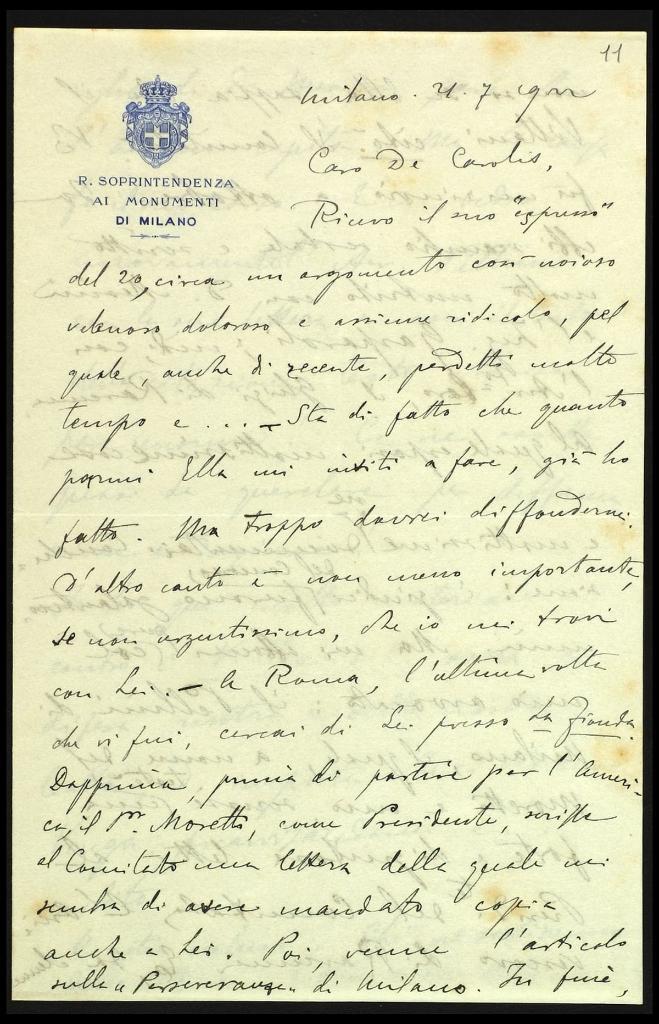 11
Milano. 21. 7 1922
R. SOPRINTENDENZA
AI MONUMENTI
DI MILANO
Caro De Carolis,
Ricevo il suo "espresso"
del 20, circa un argomento così noioso
velenoso doloroso e assieme ridicolo, pel
quale, anche di recente, perdetti molto
tempo e ... – Sta di fatto che quanto
parmi Ella mi inviti a fare, già ho
fatto. Ma troppo dovrei diffondermi.
D'altro canto è non meno importante,
se non urgentissimo, che io mi trovi
con Lei. – A Roma, l'ultima volta
che vi fui, cercai di Lei presso La Fionda.
Dapprima, prima di partire per l'Ameri-
ca, il Pr. Moretti, come Presidente, scrisse
al Comitato una lettera della quale mi
sembra di avere mandato copia
anche a Lei. Poi, venne l'articolo
sulla "Perseveranza" di Milano. In fine,